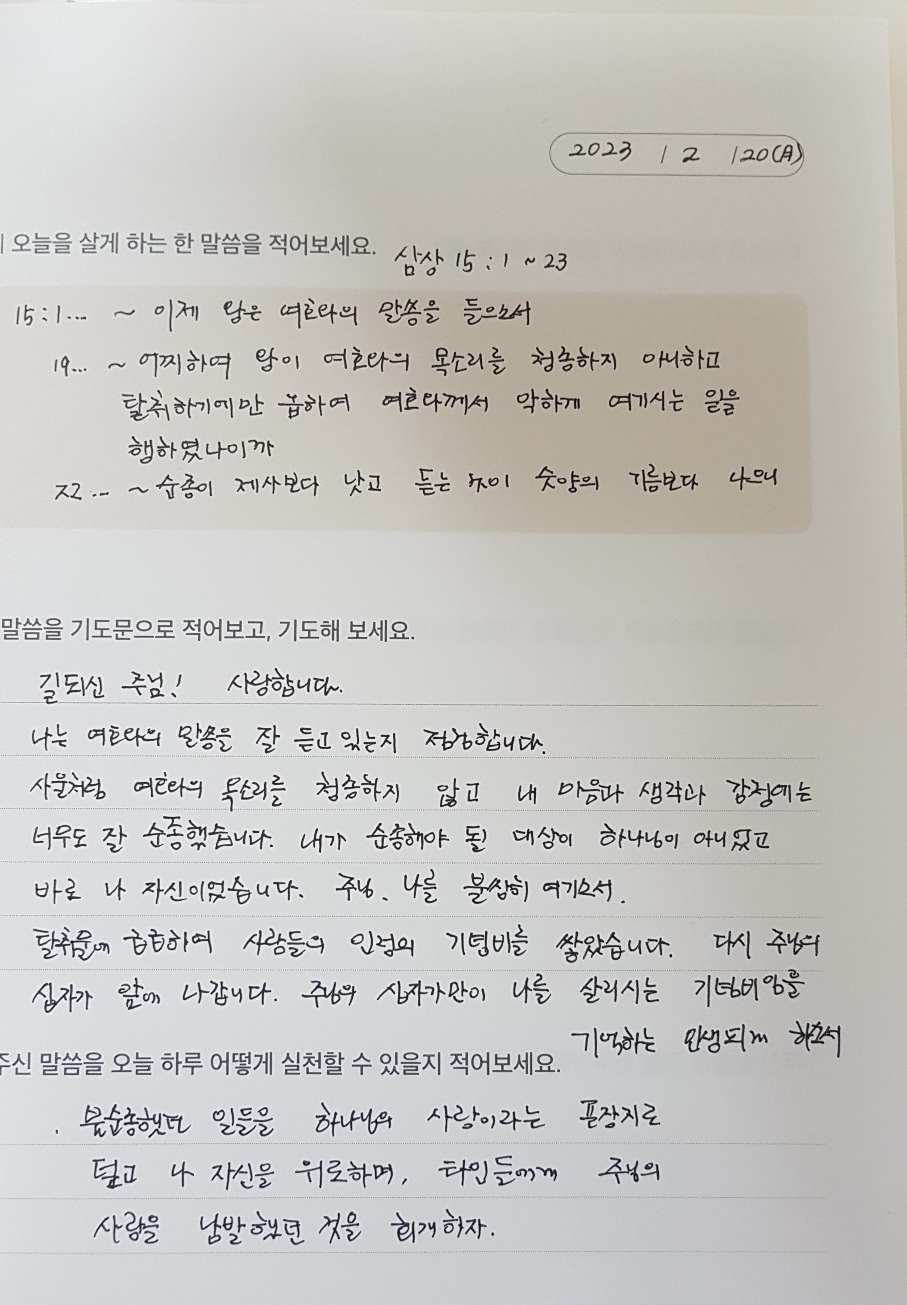 2023 / 2 / 20(月)
오늘을 살게 하는 한 말씀을 적어보세요. 삼상 15 : 1 ~ 23
15:1... ~ 이제 왕은 여호와의 말씀을 들으소서
19... ~ 어찌하여 왕이 여호와의 목소리를 청종하지 아니하고
탈취하기에만 급하여 여호와께서 악하게 여기시는 일을
행하였나이까
22... ~ 순종이 제사보다 낫고 듣는 것이 숫양의 기름보다 나으니
말씀을 기도문으로 적어보고, 기도해 보세요.
길되신 주님! 사랑합니다.
나는 여호와의 말씀을 잘 듣고 있는지 점검합니다.
사울처럼 여호와의 목소리를 청종하지 않고 내 마음과 생각과 감정에는
너무도 잘 순종했습니다. 내가 순종해야 될 대상이 하나님이 아니었고
바로 나 자신이었습니다. 주님, 나를 불쌍히 여기소서.
탈취물에 급급하여 사람들의 인정의 기념비를 쌓았습니다. 다시 주님의
십자가 앞에 나갑니다. 주님의 십자가만이 나를 살리시는 기념비임을
기억하는 인생되게 하소서
주신 말씀을 오늘 하루 어떻게 실천할 수 있을지 적어보세요.
. 불순종했던 일들을 하나님의 사랑이라는 포장지로
덮고 나 자신을 위로하며, 타인들에게 주님의
사랑을 남발했던 것을 회개하자.